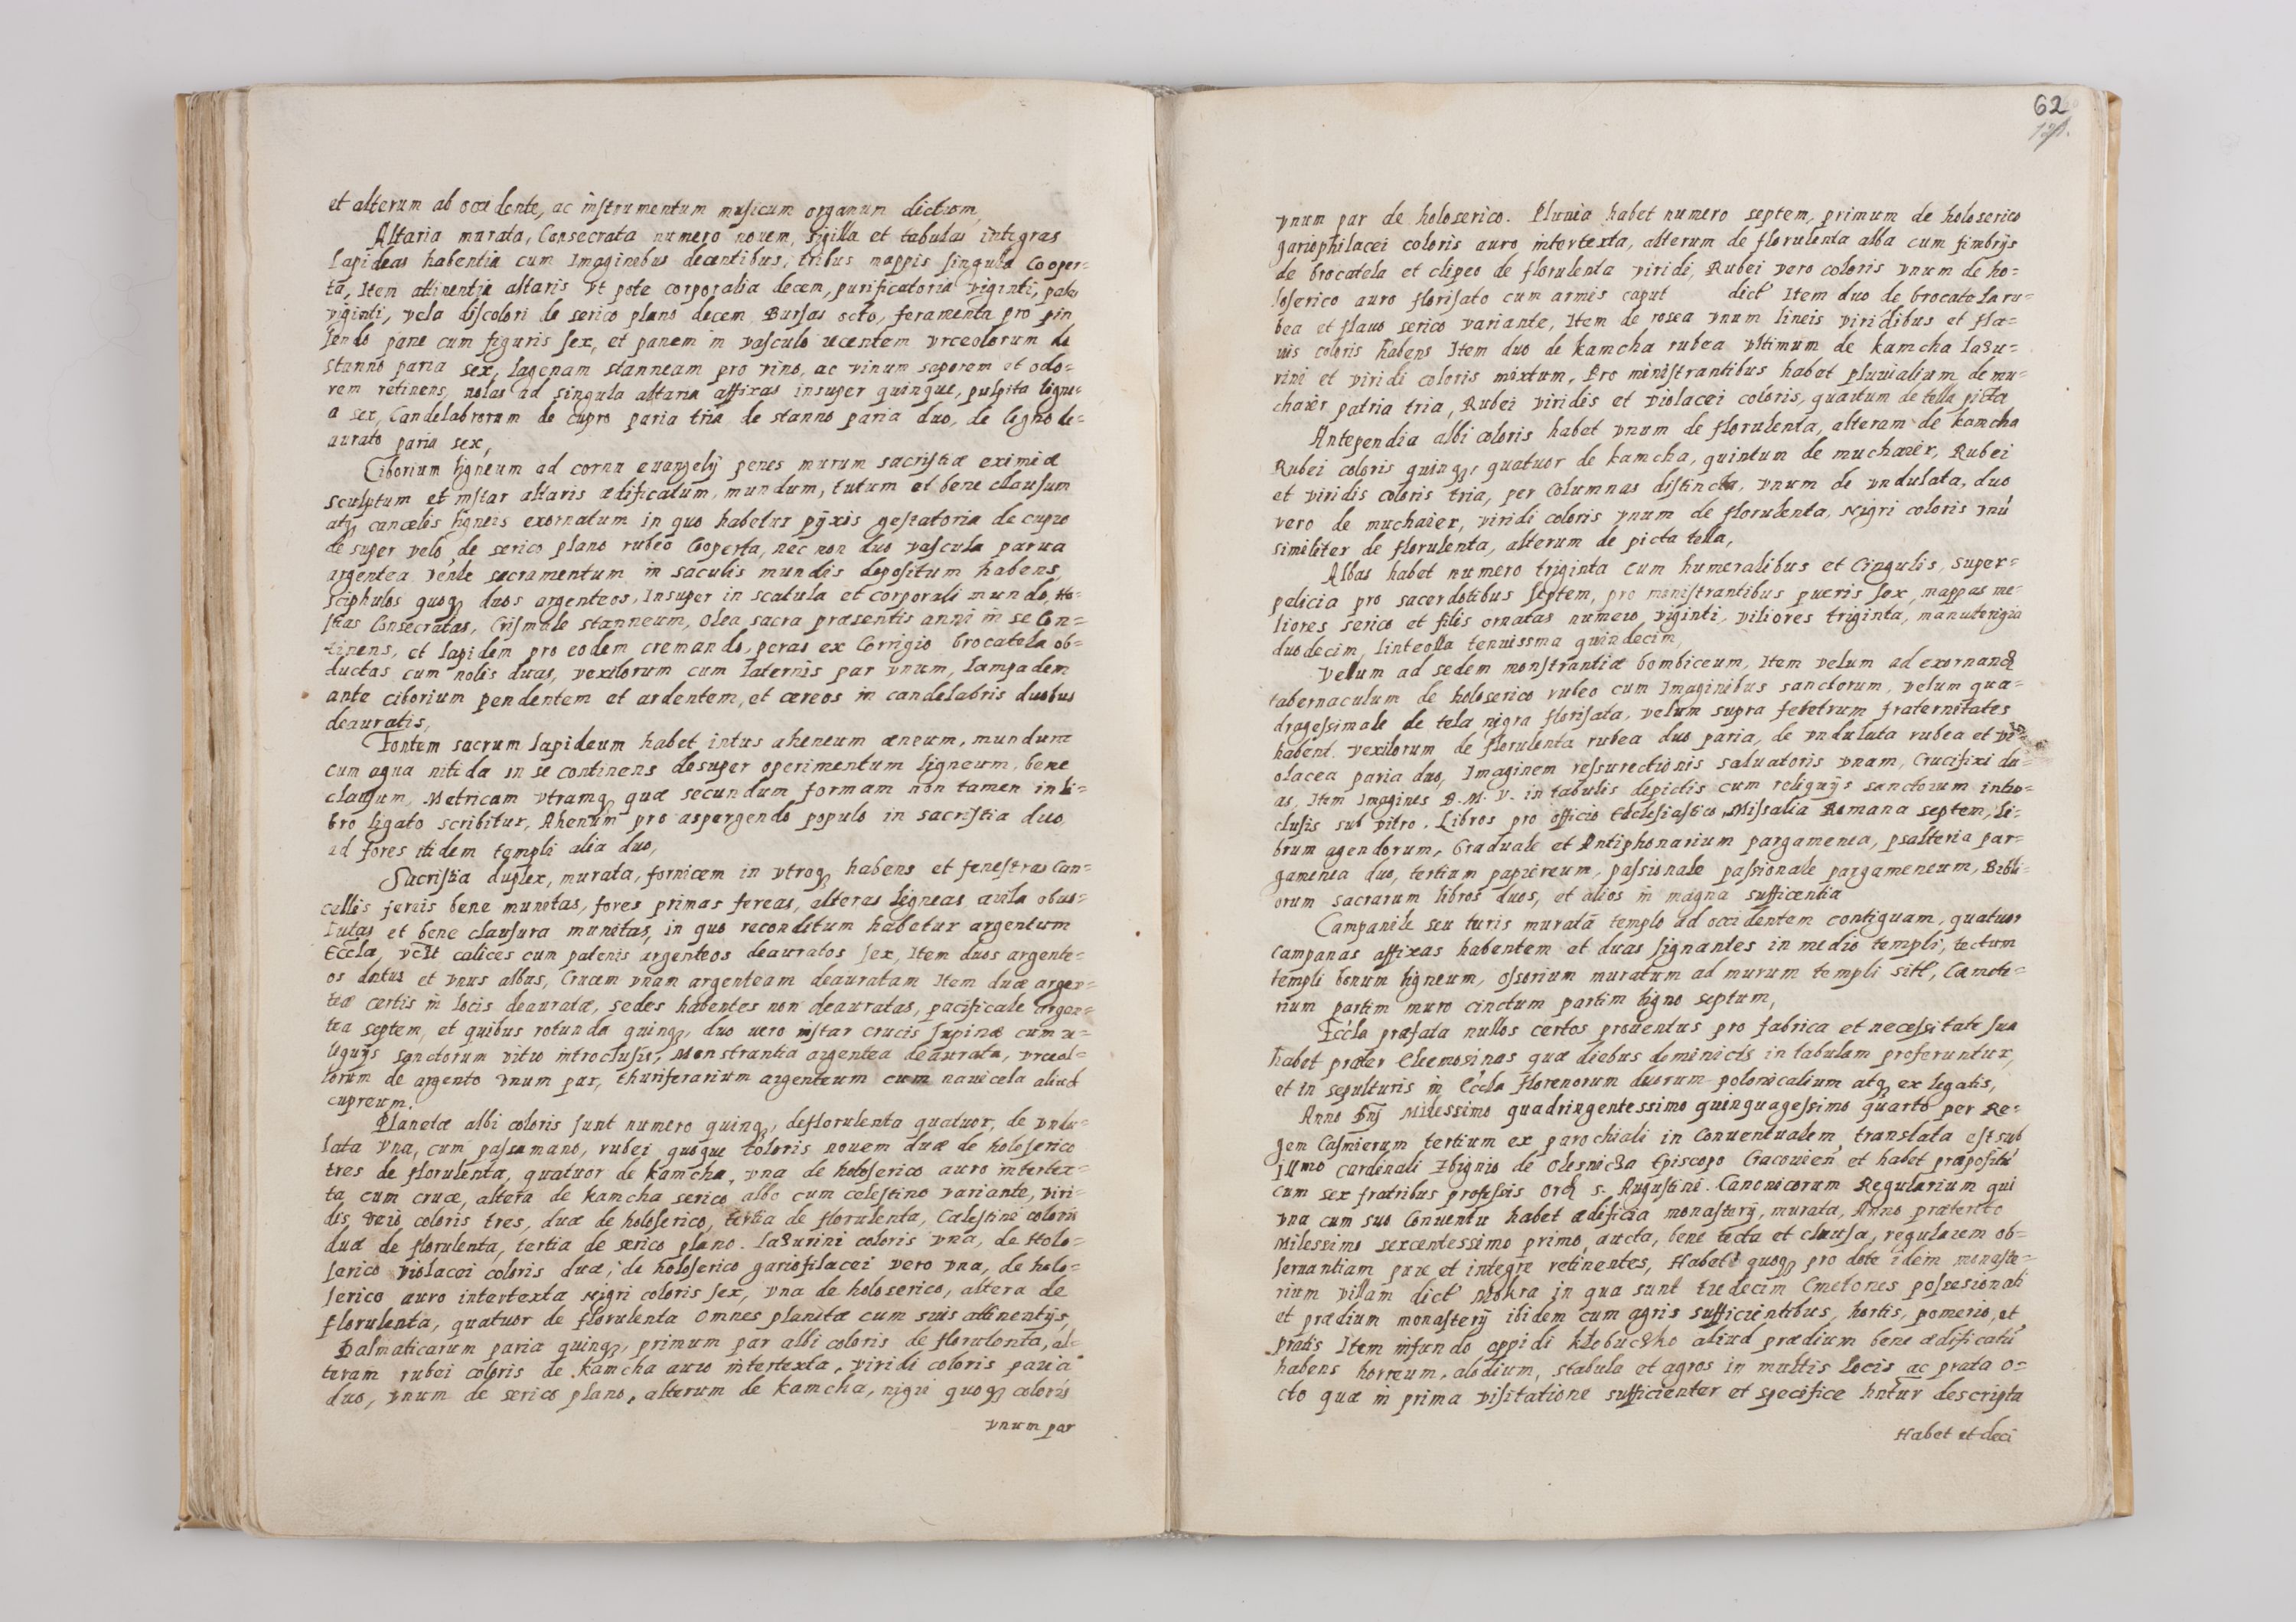 et alterum ab occidente, ac instrumentum musicum organum dictum,
Altaria murata, Consecrata numero nouem, sigilla et tabulas integras
lapideas habentia cum Imaginibus decentibus, tribus mappis singula Cooper=
ta, Item attinentia altaris vt pote corporalia decem, purificatoria viginti, pale
viginti, vela discolori de serico plano decem Bursas octo, feramenta pro pin
sendo pane cum figuris sex, et panem in vasculo recentem vrceolorum de
stanno paria sex, lagenam stanneam pro vino, ac vinum saporem et odo=
rem retinens, nolas ad singula altaria affixas insuper quinque, pulpita ligne=
a sex, Candelabrorum de cupro paria tria de stanno paria duo, de ligno de=
aurato paria sex,
Ciborium ligneum ad cornu euangelij penes murum sacristiæ eximiæ
sculptum et instar altaris ædificatum, mundum, tutum et bene clausum
atq cancelis ligneis exornatum in quo habetur pÿxis gestatoria de cupro
de super velo de serico plano rubeo Cooperta, nec non duo vascula parua
argentea venle sacramentum in saculis mundis depositum habens,
sciphulos quoq duos argenteos, Insuper in scatula et corporali mundo, Ho=
stias Consecratas, Crismale stanneum, olea sacra præsentis anni in se Con=
tinens, et lapidem pro eodem cremando, peras ex Corrigio brocatela ob=
ductas cum nolis duas, vexilorum cum laternis par vnum, lampadem
ante ciborium pendentem et ardentem, et cæreos in candelabris duobus
deauratis,
Fontem sacrum lapideum habet intus aheneum æneum, mundum
cum aqua nitida in se continens desuper operimentum ligneum, bene
clausum, Metricam vtramq quæ secundum formam non tamen in li=
bro ligato scribitur, Ahenum pro aspergendo populo in sacristia duo
ad fores itidem templi alia duo,
Sacristia duplex, murata, fornicem in vtroq habens et fenestras Can=
cellis ferreis bene munitas, fores primas fereas, alteras ligneas avila obus=
lulas et bene clausura munitas, in quo reconditum habetur argentum
Eccla, vclt calices cum patenis argenteos deauratos sex, Item duos argente=
os intus et vnus albus, Crucem vnam argenteam deauratam Item duæ argen=
teæ certis in locis deauratæ, sedes habentes non deauratas, pacificale argen=
tea septem, et quibus rotunda quinq, duo uero instar crucis supinæ cum re=
liquijs sanctorum vitro introclusis, Monstrantia argentea deaurata, vrceol=
lorum de argento vnum par, thuriferarium argenteum cum nauicela aliud
cupreum.
Planetæ albi coloris sunt numero quinq, deflorulenta quatuor, de vndu=
lata vna, cum passamano, rubei quoque coloris nouem duæ de holoserico
tres de florulenta, quatuor de kamcha, vna de holoserico auro intertex=
ta cum cruce, altera de kamcha serico albo cum celestino variante, viri=
dis, vero coloris tres, duæ de holoserico, tertia de florulenta, Cælestini coloris
duæ de florulenta, tertia de serico plano. lazurini coloris vna, de Holo=
serico violacei coloris duæ, de holoserico gariofilacei vero vna, de holo=
serico auro intertexta nigri coloris sex, vna de holoserico, altera de
florulenta, quatuor de florulenta omnes planitæ cum suis attinentijs,
Dalmaticarum paria quinq, primum par albi coloris de florulenta, al=
teram rubei coloris de kamcha auro intertexta, viridi coloris paria
duo, vnum de serico plano, alterum de kamcha, nigri quoq coloris
vnum par
62
121.
vnum par de holoserico. Pluuia habet numero septem, primum de holoserico
gariophilacei coloris auro intertexta, alterum de florulenta alba cum fimbrijs
de brocatela et clipeo de florulenta viridi, Rubei vero coloris vnum de ho=
loserico auro florisato cum armis caput dict Item duo de brocatela ru=
bea et flauo serico variante, Item de rosea vnum lineis viridibus et fla=
uis coloris habens Item duo de kamcha rubea vltimum de kamcha lazu=
rini et viridi coloris mixtum, Pro ministrantibus habet pluuialium de mu=
chaier patria tria, Rubei viridis et violacei coloris, quartum de tella picta
Antependia albi coloris habet vnum de florulenta, alteram de kamcha
Rubei coloris quinq, quatuor de kamcha, quintum de muchaier, Rubei
et viridis coloris tria, per Columnas distincta, vnum de vndulata, duo
vero de muchaier, viridi coloris vnum de florulenta, nigri coloris vnú
similiter de florulenta, alterum de picta tella,
Albas habet numero triginta cum humeralibus et Cingulis, super=
pelicia pro sacerdotibus septem, pro ministrantibus pueris sex, mappas me=
liores serico et filis ornatas numero viginti, viliores triginta, manutergia
duodecim, linteolla tenuissma quindecim,
Velum ad sedem monstrantiæ bombiceum, Item velum ad exornand
tabernaculum de holoserico rubeo cum Imaginibus sanctorum, velum qua=
dragessimale de tela nigra florisata, velum supra feretrum fraternitates
habent vexilorum de florulenta rubea duo paria, de vndulata rubea et vi=
olacea paria duo, Imaginem ressurectionis saluatoris vnam, Crucifixi du=
as, Item Imagines B. M. V. in tabulis depictis cum reliquijs sanctorum intro=
clusis sub vitro. Libros pro officio Ecclesiastico, Missalia Romana septem, li=
brum agendorum, Graduale et Antiphonarium pargamenea, psalteria par=
gamenea duo, tertium papiereum, passionale passionale pargameneum, Bibli=
orum sacrarum libros duos, et alios in magna sufficentia
Campanile seu turis muratā templo ad occidentem contiguam, quatuor
Campanas affixas habentem et duas signantes in medio templi, tectum
templi bonum ligneum, ossorium muratum ad murum templi sitl, Cæmete=
rium partim muro cinctum partim ligno septum,
Eccla præfata nullos certos prouentus pro fabrica et necessitate sua
habet præter Eleemosinas quæ diebus dominicis in tabulam proferuntur,
et in sepulturis in Eccla florenorum duorum polonicalium atq ex legatis,
Anno Dnj Milessimo quadringentessimo quinquagessimo quarto per Re=
gem Casmierum tertium ex parochiali in Conuentualem translata est sub
Illmo Cardinali Zbignio de Olesnicza Episcopo Cracouień et habet præpositū
cum sex fratribus professis Ord s. Augustini. Canonicorum Regularium qui
vna cum suo Conuentu habet ædificia monasterij, murata, Anno præterito
Milessimo sexcentessimo primo aucta, bene tecta et clausa, regularem ob=
seruantiam pure et integre retinentes, Habet quoq pro dote idem monaste=
rium villam dict Mokra in qua sunt tredecim Cmetones possesionati
et prædium monasterij ibidem cum agris sufficientibus, hortis, pomerio, et
pratis Item infundo oppidi kłobuczko aliud prædium bene ædificatū
habens horreum, alodium, stabula et agros in multis locis ac prata o=
cto quæ in prima visitatione sufficienter et specifice hntur descripta
Habet et deci